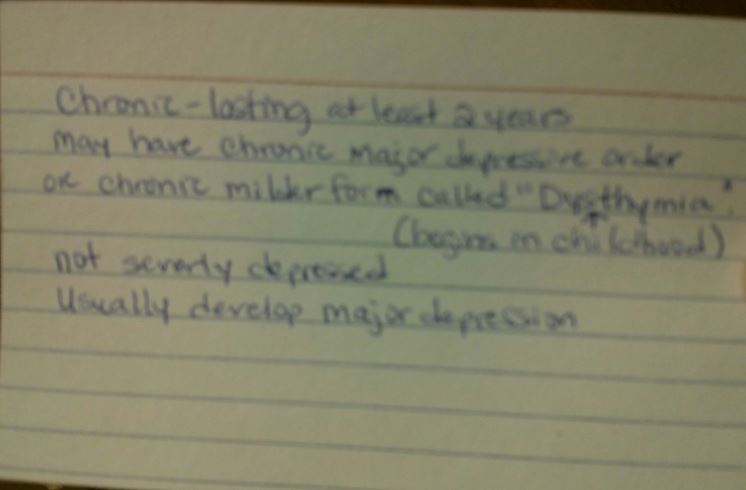 Chronic - lasting at least 2 years
may have chronic major depressive order
or chronic milder form called "Dysthymia".
(begins in childhood)
not severly depressed
Usually develop major depression